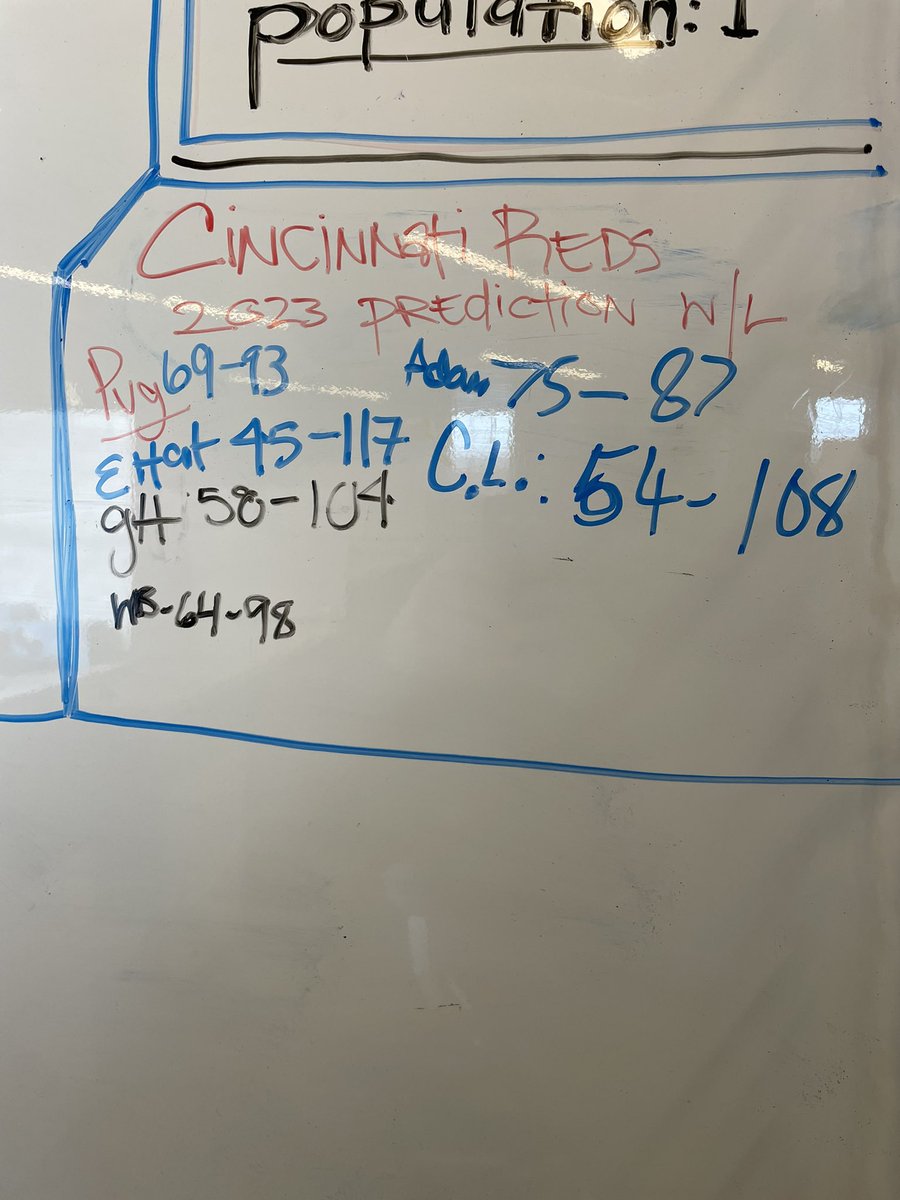 population: 1
Cincinnati Reds
2023 prediction W/L
Pug 69-93
Adam 75-87
EHat 45-117
C.L.: 54-108
gH 58-104
WB-64-98